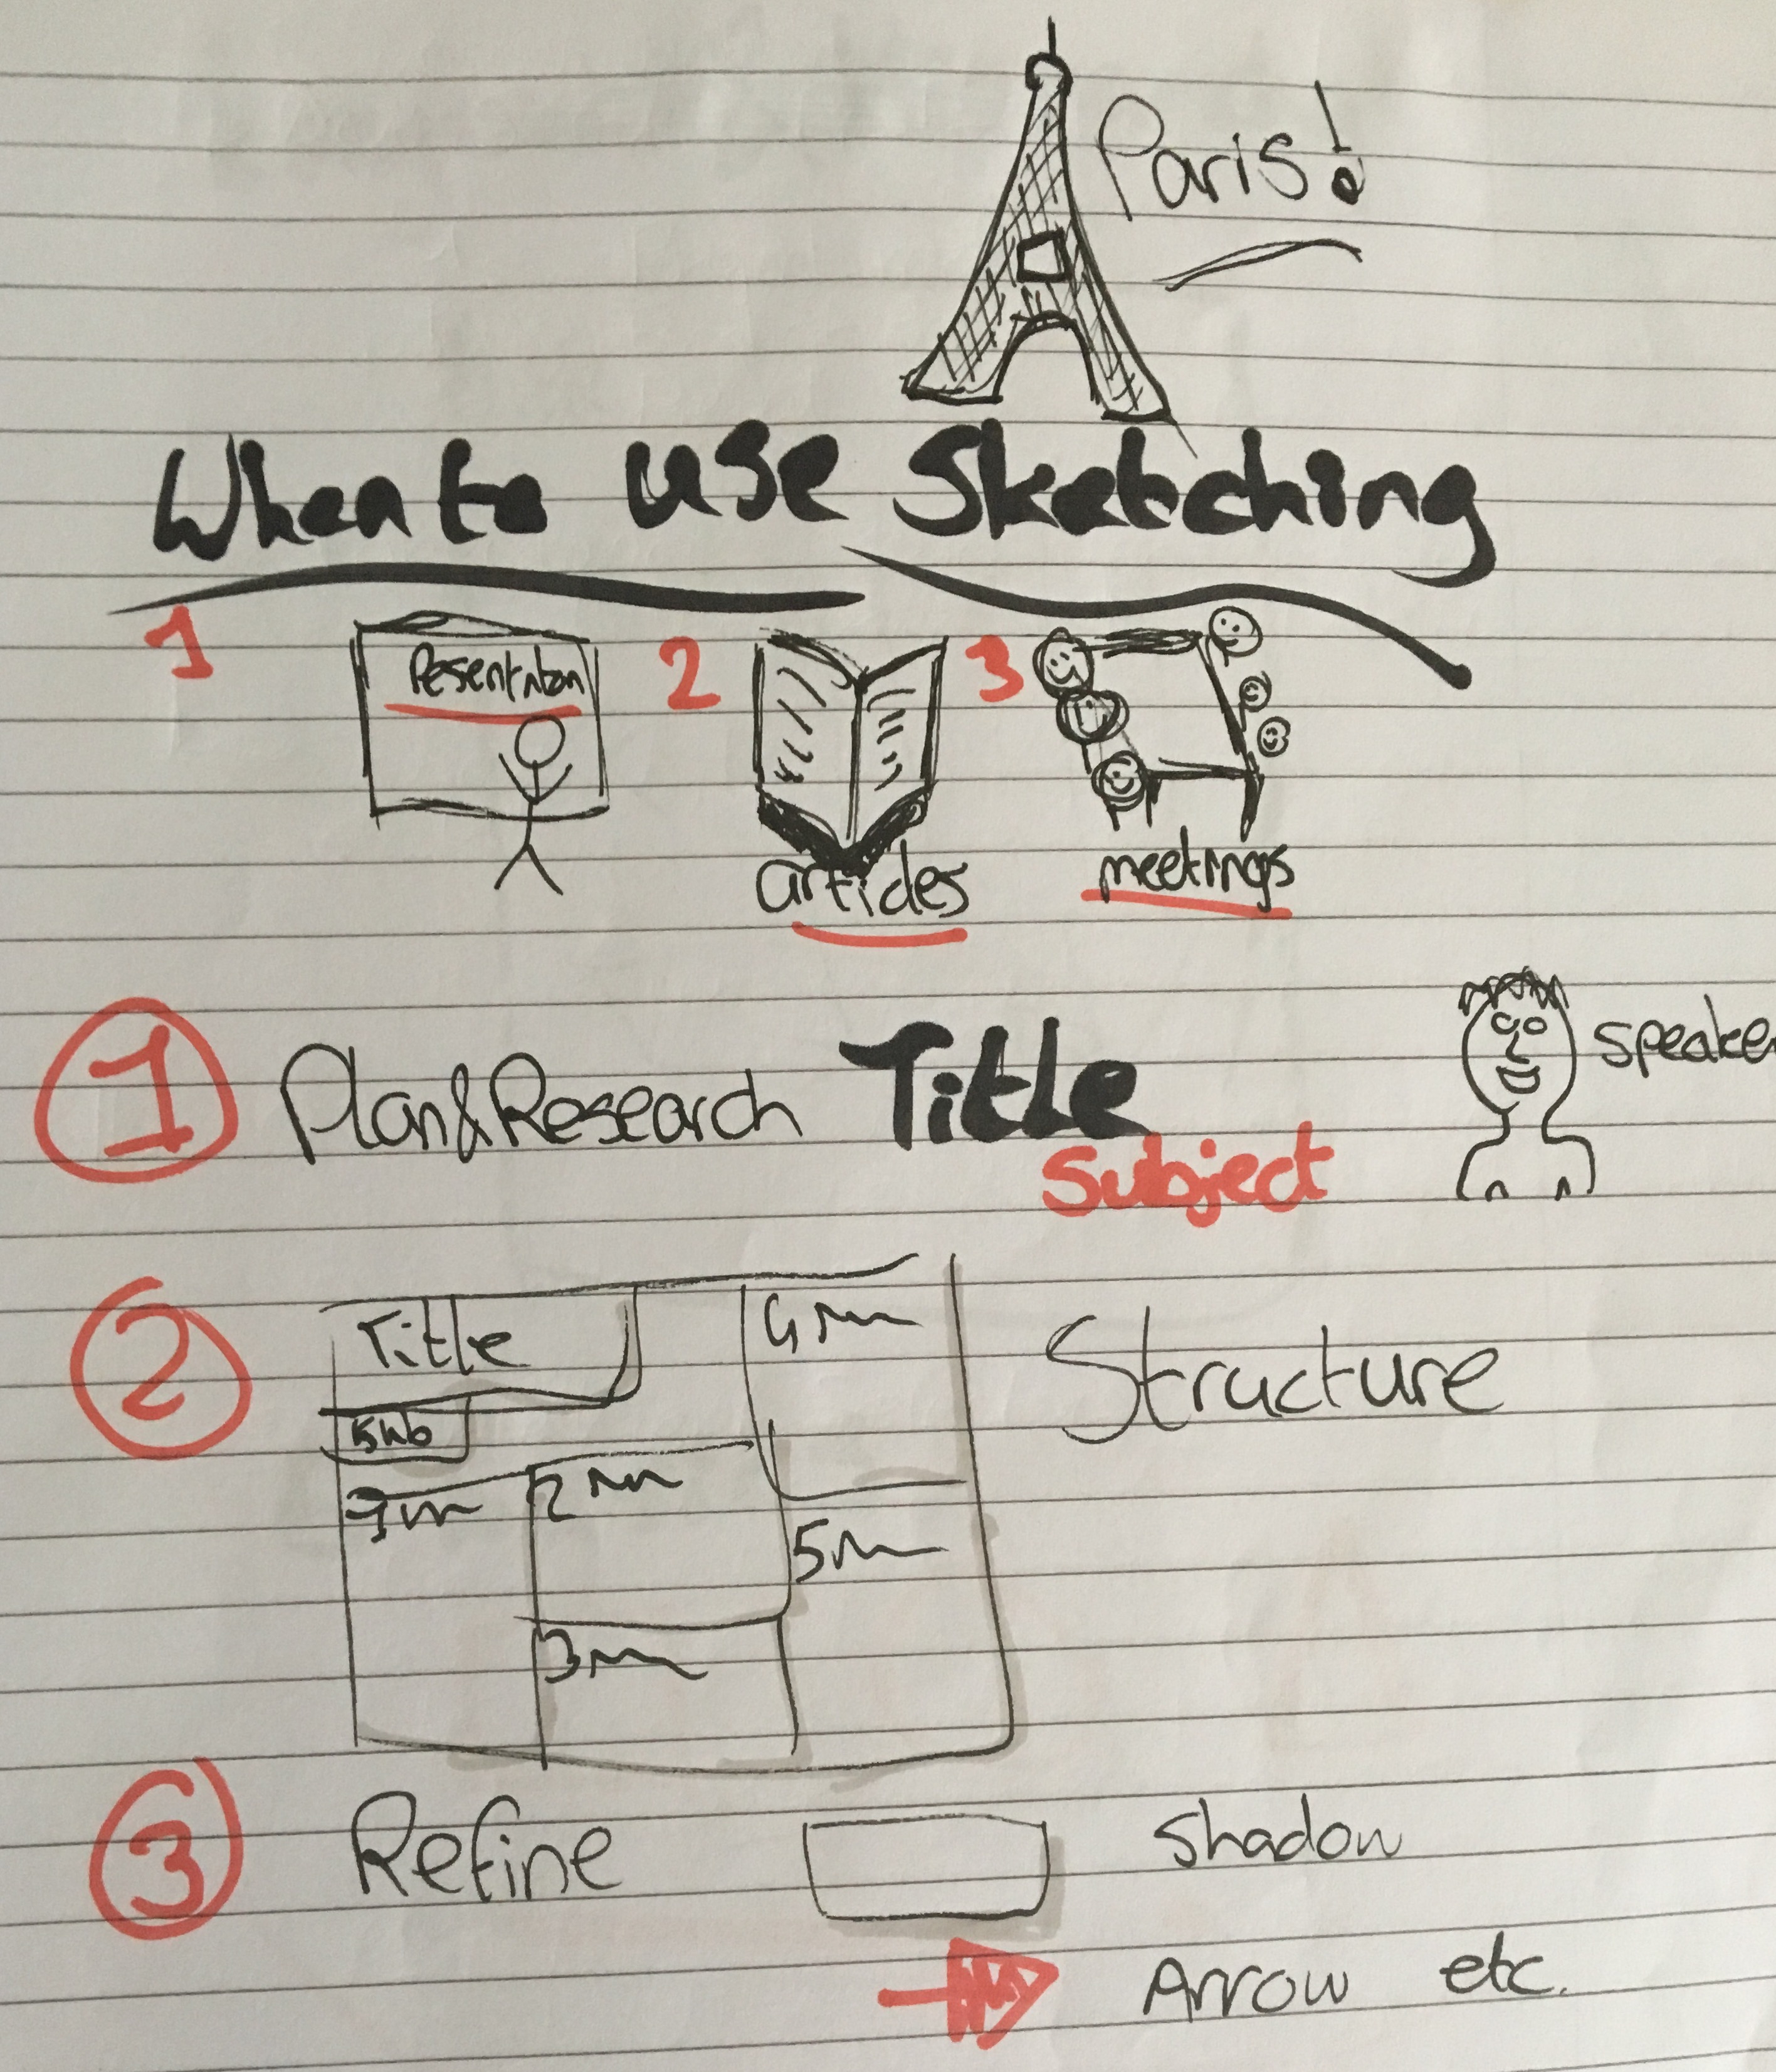 Paris!
When to use Sketching
1 Presentation
2 articles
3 meetings
1 Plan & Research Title speaker
Subject
2 Title 4 Structure
Sub
1 2
5
3
3 Refine Shadow
Arrow etc.